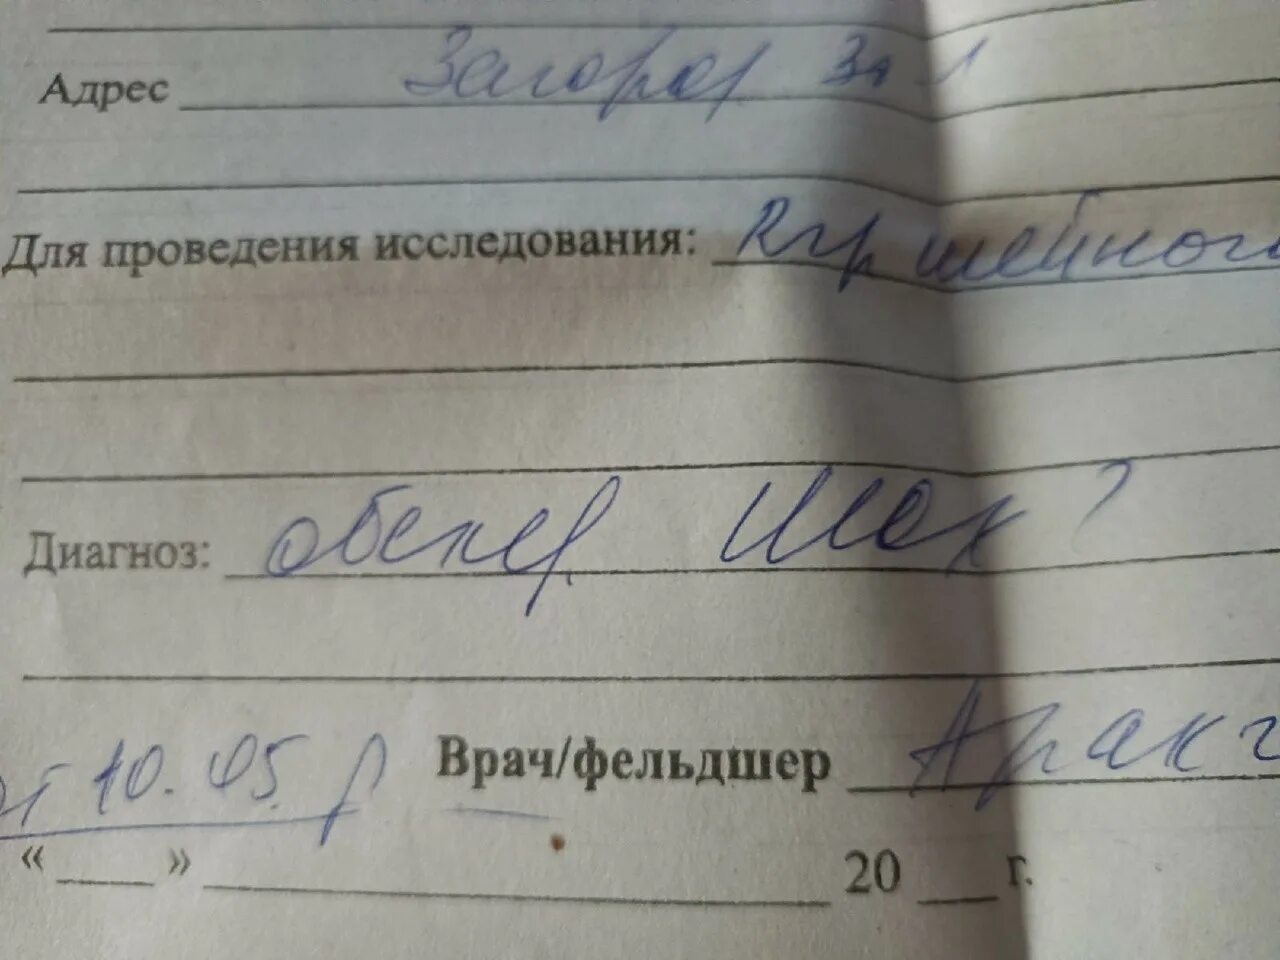 Адрес Загород 3а
Для проведения исследования: Rгр шейного
Диагноз: обслед. шох?
от 10.05. Врач/фельдшер
« » 20 г.